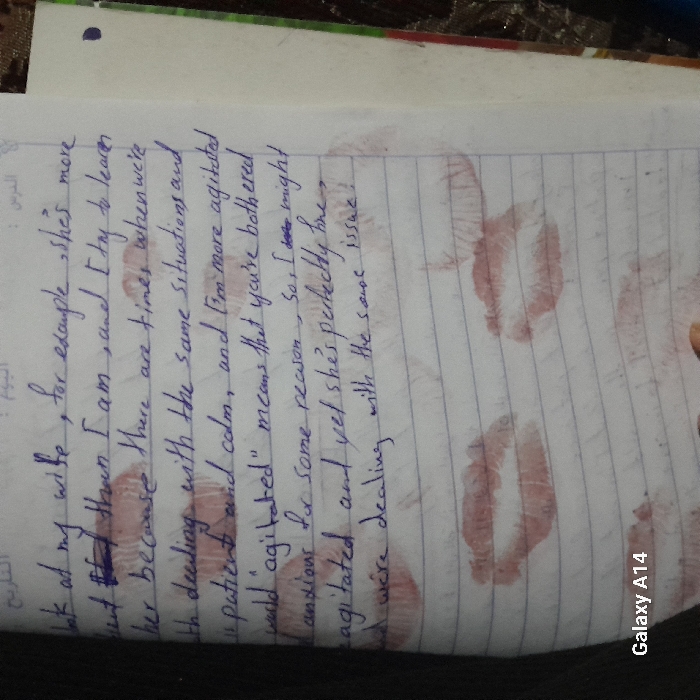 الدرس : اليوم : التاريخ
ok at my wife, for example, she's more
ent than I am, and I try to learn
her because there are times when we're
th dealing with the same situations and
is patient and calm, and I'm more agitated
word "agitated" means that you're bothered
anxious for some reason, so I might
agitated and yet she's perfectly fine,
we're dealing with the same issue.
Galaxy A14